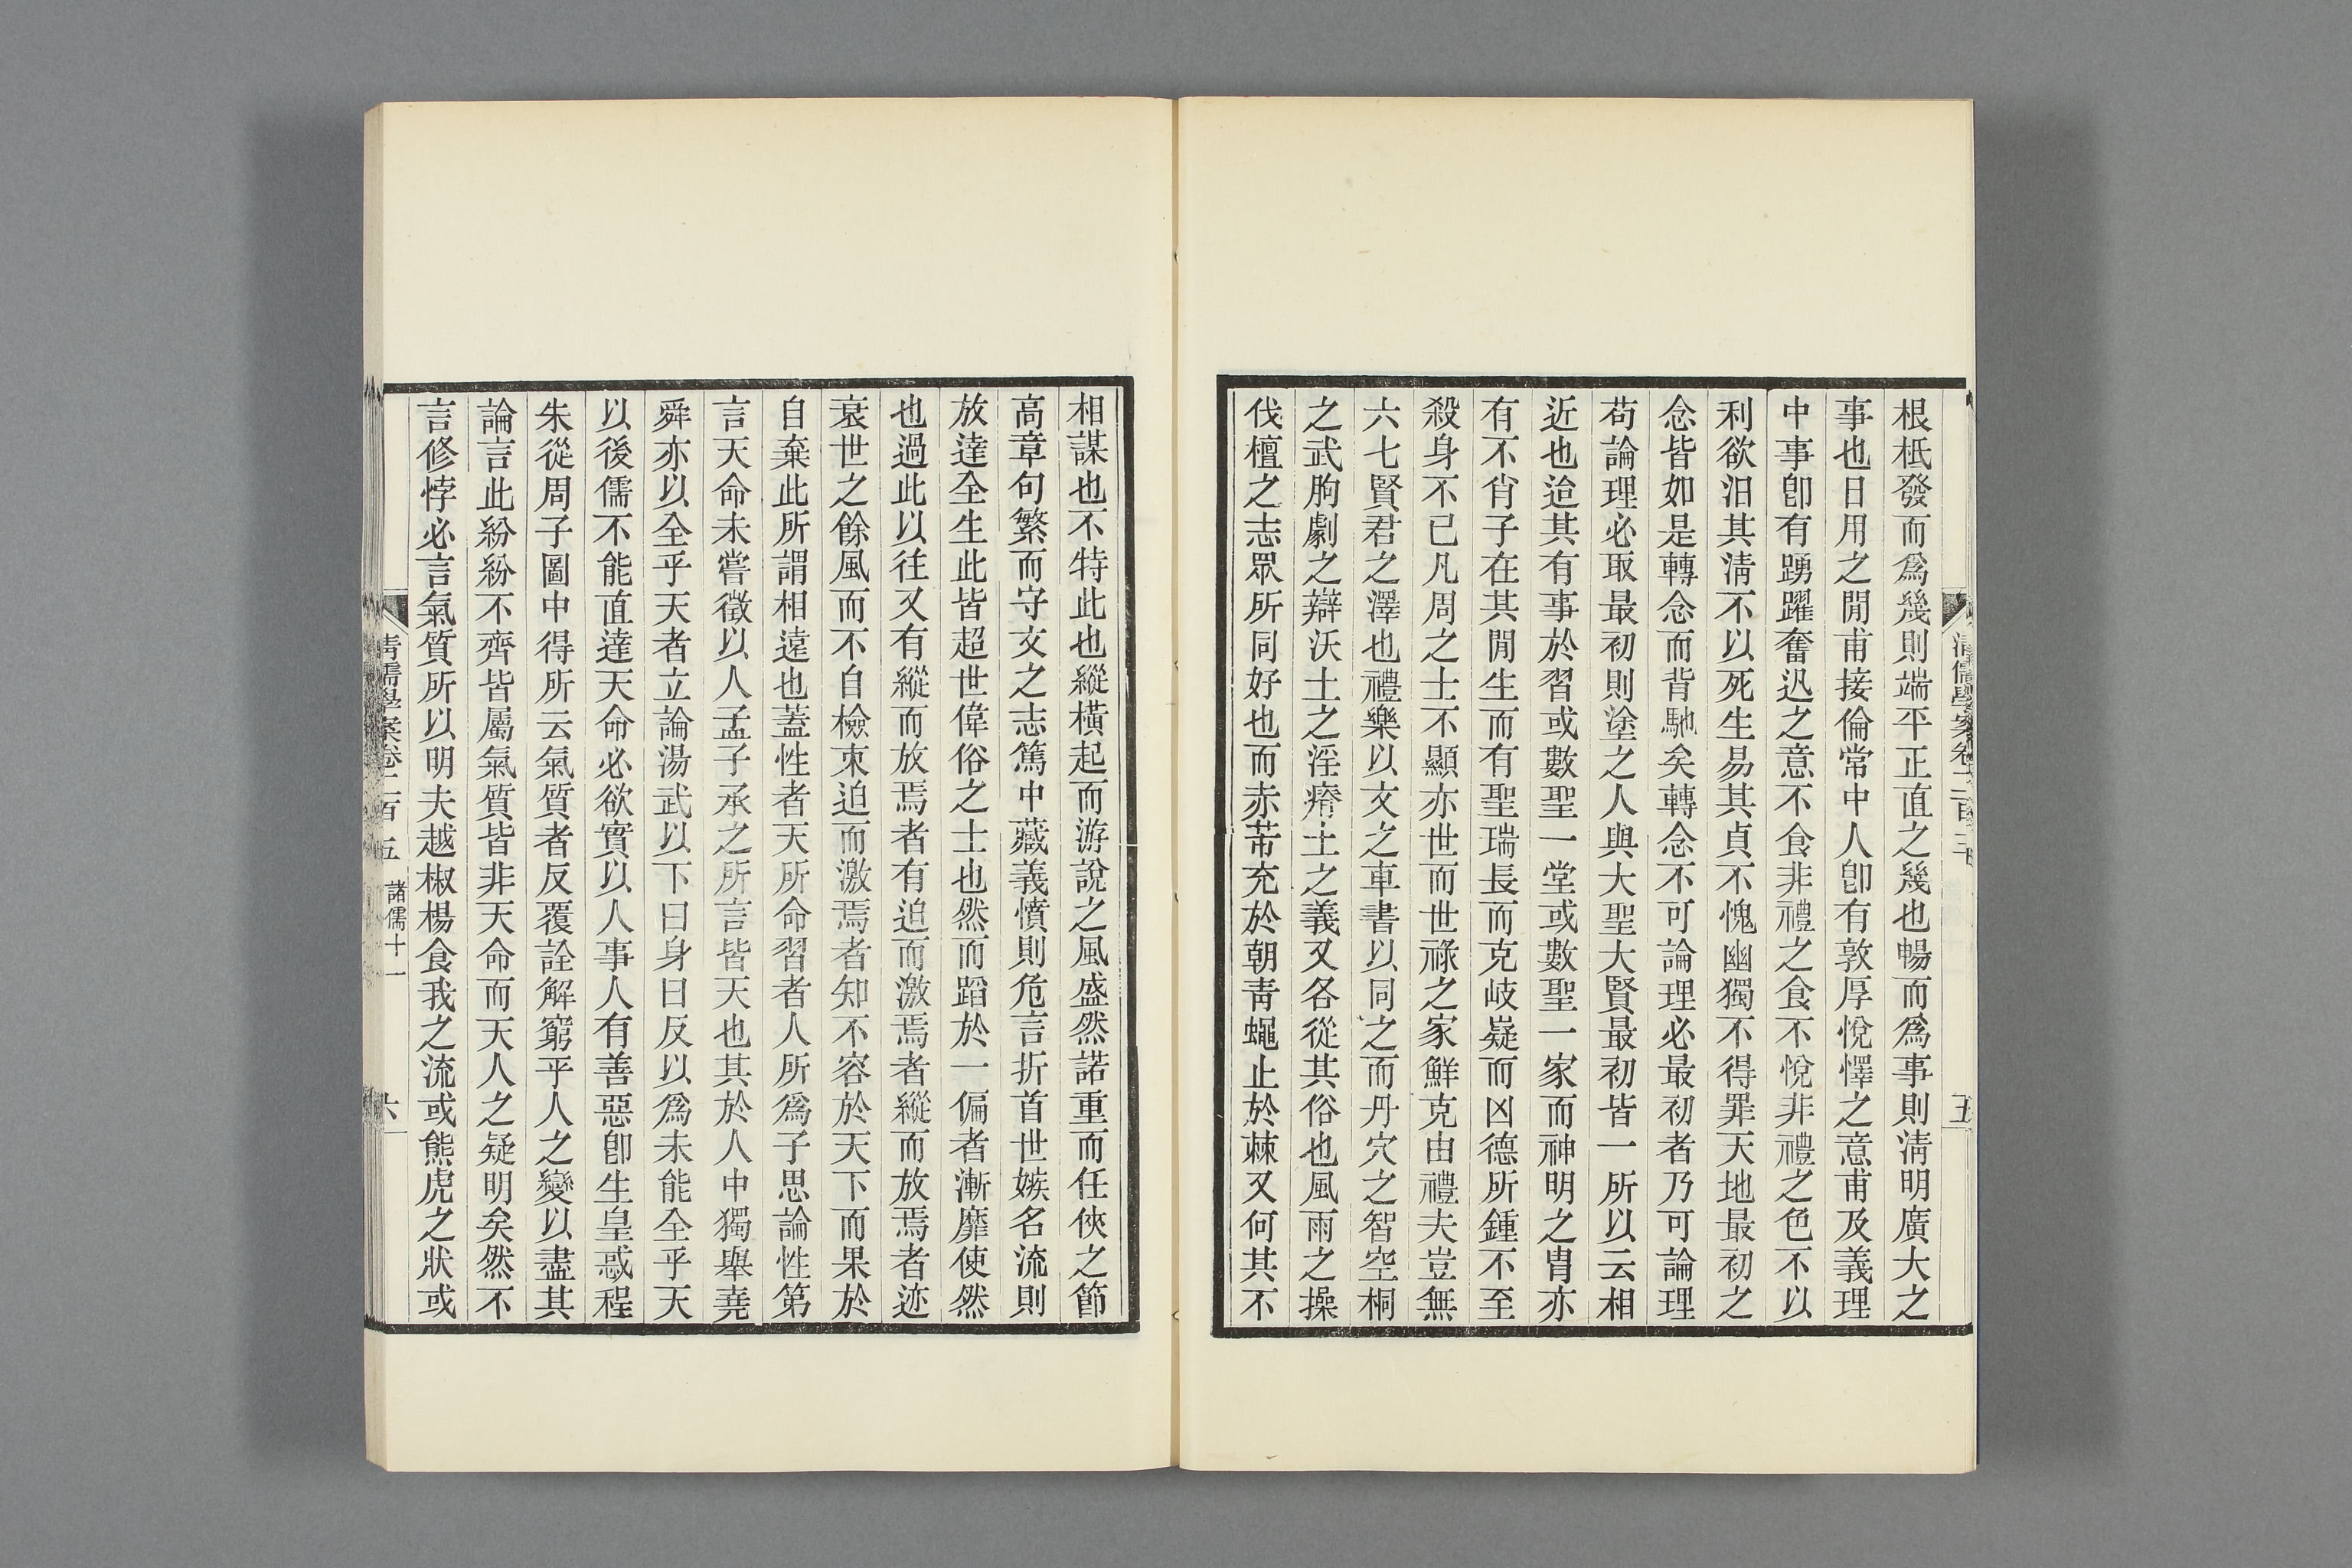 根柢發而爲幾則端平正直之幾也暢而爲事則淸明廣大之
事也日用之閒甫接倫常中人卽有敦厚悅懌之意甫及義理
中事卽有踴躍奮迅之意不食非禮之食不悅非禮之色不以
利欲汨其淸不以死生易其貞不愧幽獨不得罪天地最初之
念皆如是轉念而背馳矣轉念不可論理必最初者乃可論理
苟論理必取最初則塗之人與大聖大賢最初皆一所以云相
近也迨其有事於習或數聖一堂或數聖一家而神明之胄亦
有不肖子在其閒生而有聖瑞長而克岐嶷而凶德所鍾不至
殺身不已凡周之士不顯亦世而世祿之家鮮克由禮夫豈無
六七賢君之澤也禮樂以文之車書以同之而丹穴之智空桐
之武朐劇之辯沃土之淫瘠土之義又各從其俗也風雨之操
伐檀之志眾所同好也而赤芾充於朝靑蠅止於棘又何其不
相謀也不特此也縱橫起而游說之風盛然諾重而任俠之節
高章句繁而守文之志篤中藏義憤則危言折首世嫉名流則
放達全生此皆超世偉俗之士也然而蹈於一偏者漸靡使然
也過此以往又有縱而放焉者有迫而激焉者縱而放焉者迹
衰世之餘風而不自檢束迫而激焉者知不容於天下而果於
自棄此所謂相遠也蓋性者天所命習者人所爲子思論性第
言天命未嘗徵以人孟子承之所言皆天也其於人中獨舉堯
舜亦以全乎天者立論湯武以下曰身曰反以爲未能全乎天
以後儒不能直達天命必欲實以人事人有善惡卽生皇惑程
朱從周子圖中得所云氣質者反覆詮解窮乎人之變以盡其
論言此紛紛不齊皆屬氣質皆非天命而天人之疑明矣然不
言修悖必言氣質所以明夫越椒楊食我之流或熊虎之狀或
淸儒學案卷二百五
諸儒十一
六